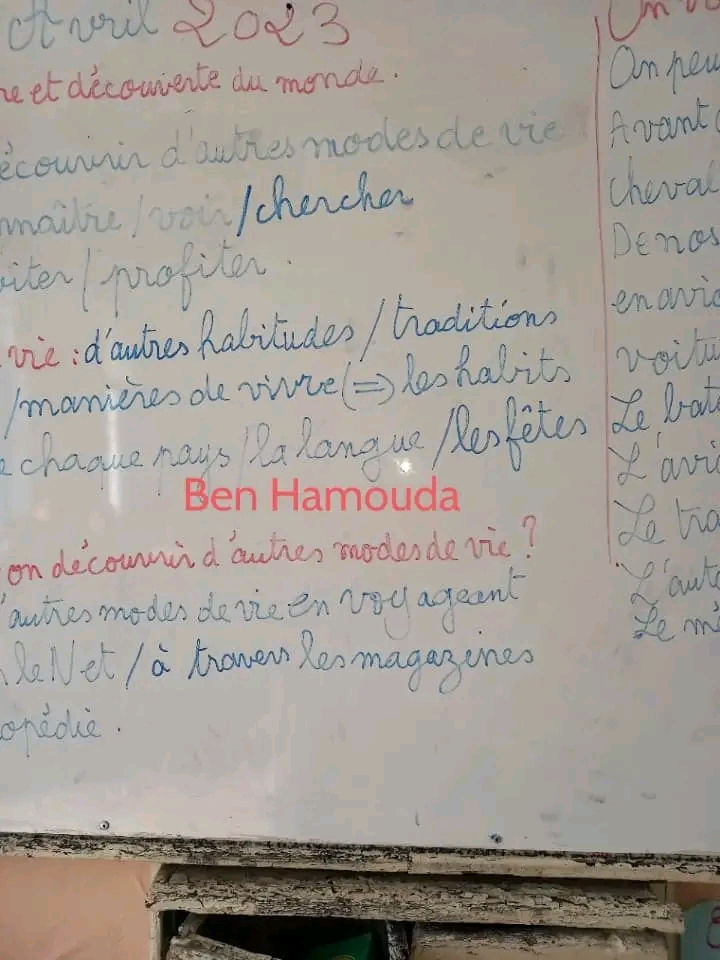 Avril 2023
re et découverte du monde.
écouvrir d'autres modes de vie
nnaître / voir / chercher
iter / profiter.
vie : d'autres habitudes / traditions
/ manières de vivre (=> les habits
e chaque pays / la langue / les fêtes
Ben Hamouda
on découvrir d'autres modes de vie ?
'autres modes de vie en voyageant
le Net / à travers les magazines
opédie.
On peu
Avant
cheval
De nos
en avio
voitu
Le bat
L'avi
Le tra
L'auto
Le mé